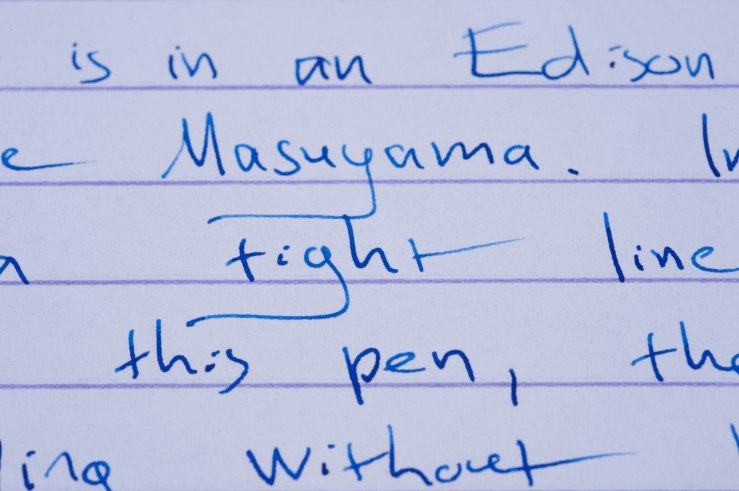 is in an Edison
e Masuyama. In
a tight line
this pen, the
ling without